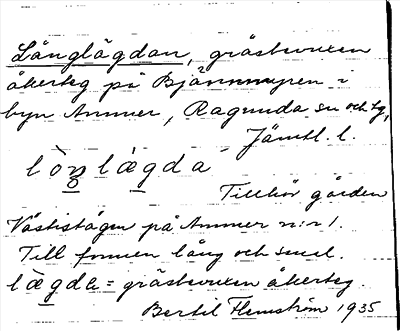 Långlägdan, gräsbevuxen
åkerteg på Bjännmyren i
byn Ammer, Ragunda sn och tg,
Jämtl. l.
lò̀ŋlæ̀gda
Tillhör gården
Västistägen på Ammer n:r 1.
Till formen lång och smal.
lægda = gräsbevuxen åkerteg.
Bertil Flemström 1935